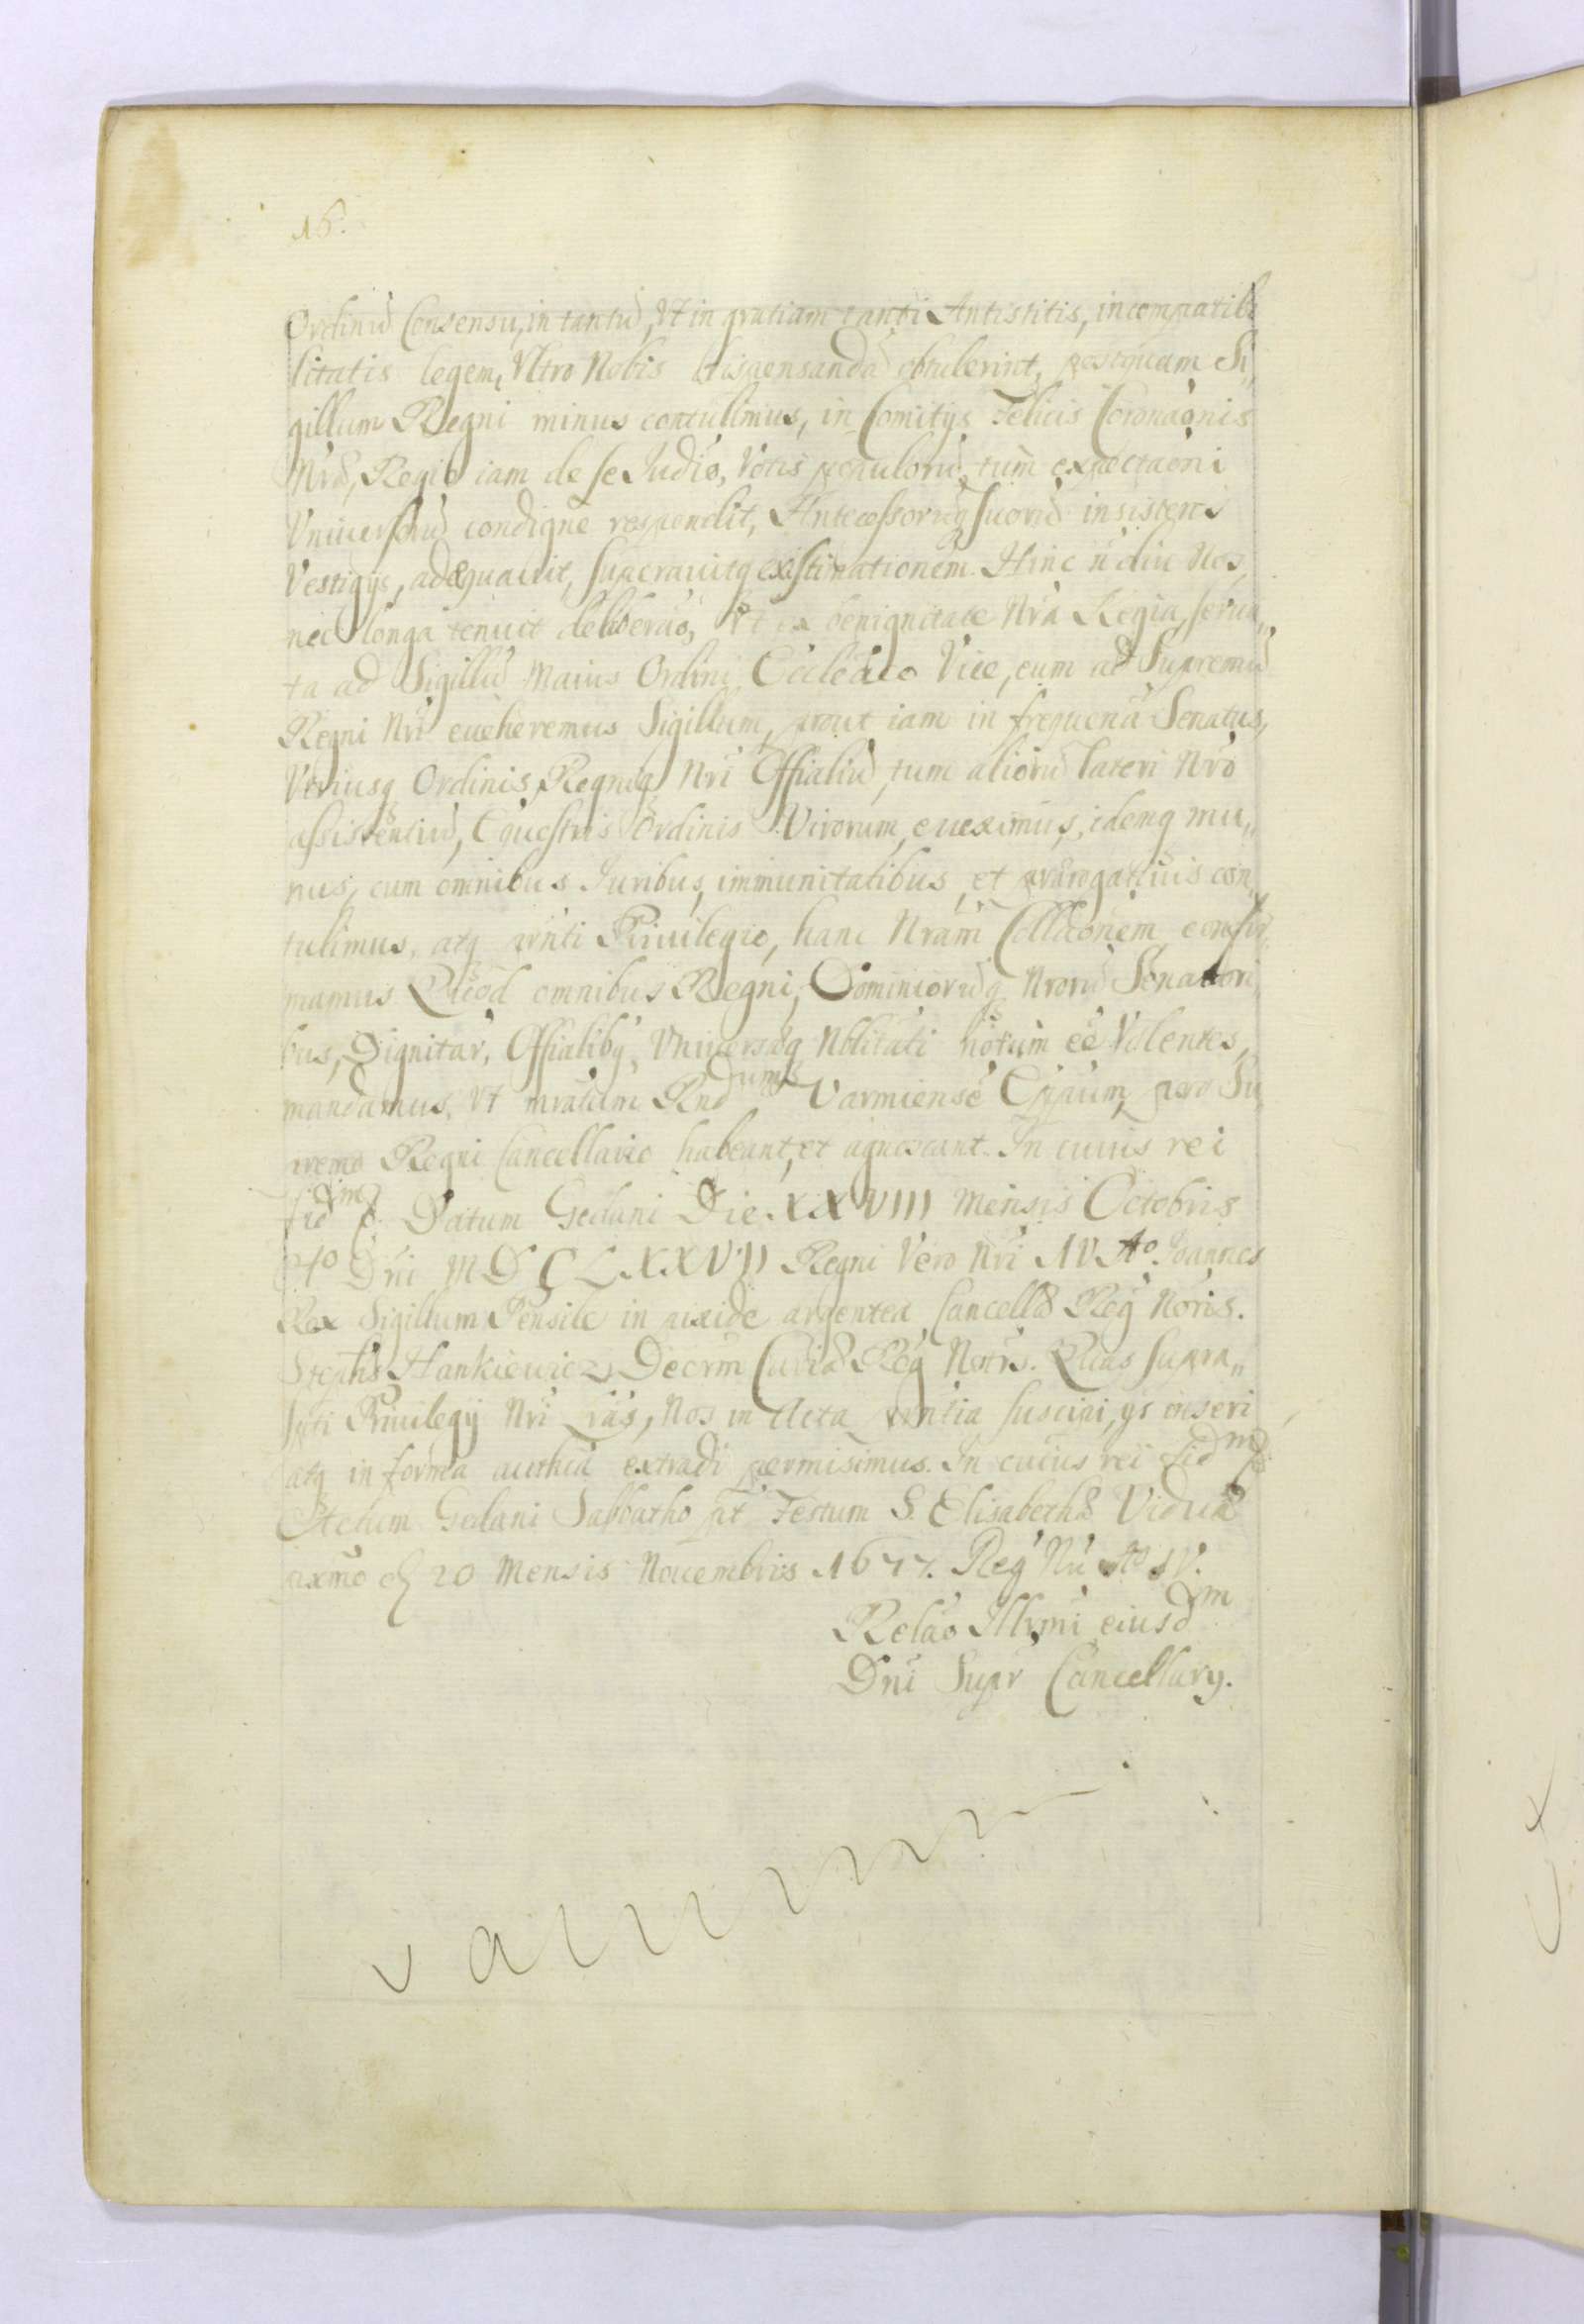 16.
Ordinũ Consensu, in tantũ, Vt in gratiam tanti Antistitis, incompatibi
litatis legem, Vltro Nobis dispensandã obtulerint, postquam Si„
gillum Regni minus contulimus, in Comitÿs Felicis Coronaõnis
Nræ, Regio iam de se Judiõ, Votis populorũ, tum expectaõni
Vniuersorũ condignè respondit, Antecessorũq Suorũ insistens
Vestigÿs, adæquauit, superauitq existimationem. Hinc ñ diu Nos,
nec longa tenuit deliberaõ, Vt ex benignitate Nrã Regia, serua„
ta ad Sigillũ Maius Ordini Eccleãco Vice, eum ad Supremũ
Regni Nrĩ eueheremus Sigillum, prout iam in frequenã Senatus,
Vtriusq Ordinis, Regniq Nrĩ Officaliũ, tum aliorũ lateri Nrõ
assistentiũ, Equestris Ordinis Virorum, eueximus, idemq mu„
nus, cum omnibus Juribus, immunitatibus, et prærogatiuis con
tulimus, atq prñti Priuilegio, hanc Nram Collãonem, confir„
mamus. Quod omnibus Regni, Dominiorũq Nrorũ Senatori„
bus, Dignitar, Officalibq, Vniuersæq Nblitati notum eẽ Volentes,
mandamus, Vt prælatum Rnd dum Varmiensẽ Epaum, pro Su„
premo Regni Cancellario habeant, et agnoscant. In cuius rei
fid m p. Datum Gedani Die XXVIII Mensis Octobris
Ao Dni MDCLXXVII Regni Vero Nri IV Ao. Joannes
Rex Sigillum Pensile in pixide argentea Cancellæ Reg Noris.
Stephs Hankiewicz Decrm Curiæ Reg Notrs. Quas supra„
scti Priuilegÿ Nri Lrãs, Nos in Acta prñtia suscipi, ÿs inseri
atq in forma authcã extradi permisimus. In cuius rei fid m p.
Actum Gedani Sabbatho pt Festum S. Elisabethæ Viduæ
pxmo d 20 Mensis Nouembris 1677. Reg Nri Ao IV.
Relaõ Illrmi eiusd m
Dni Supr Cancellarÿ.